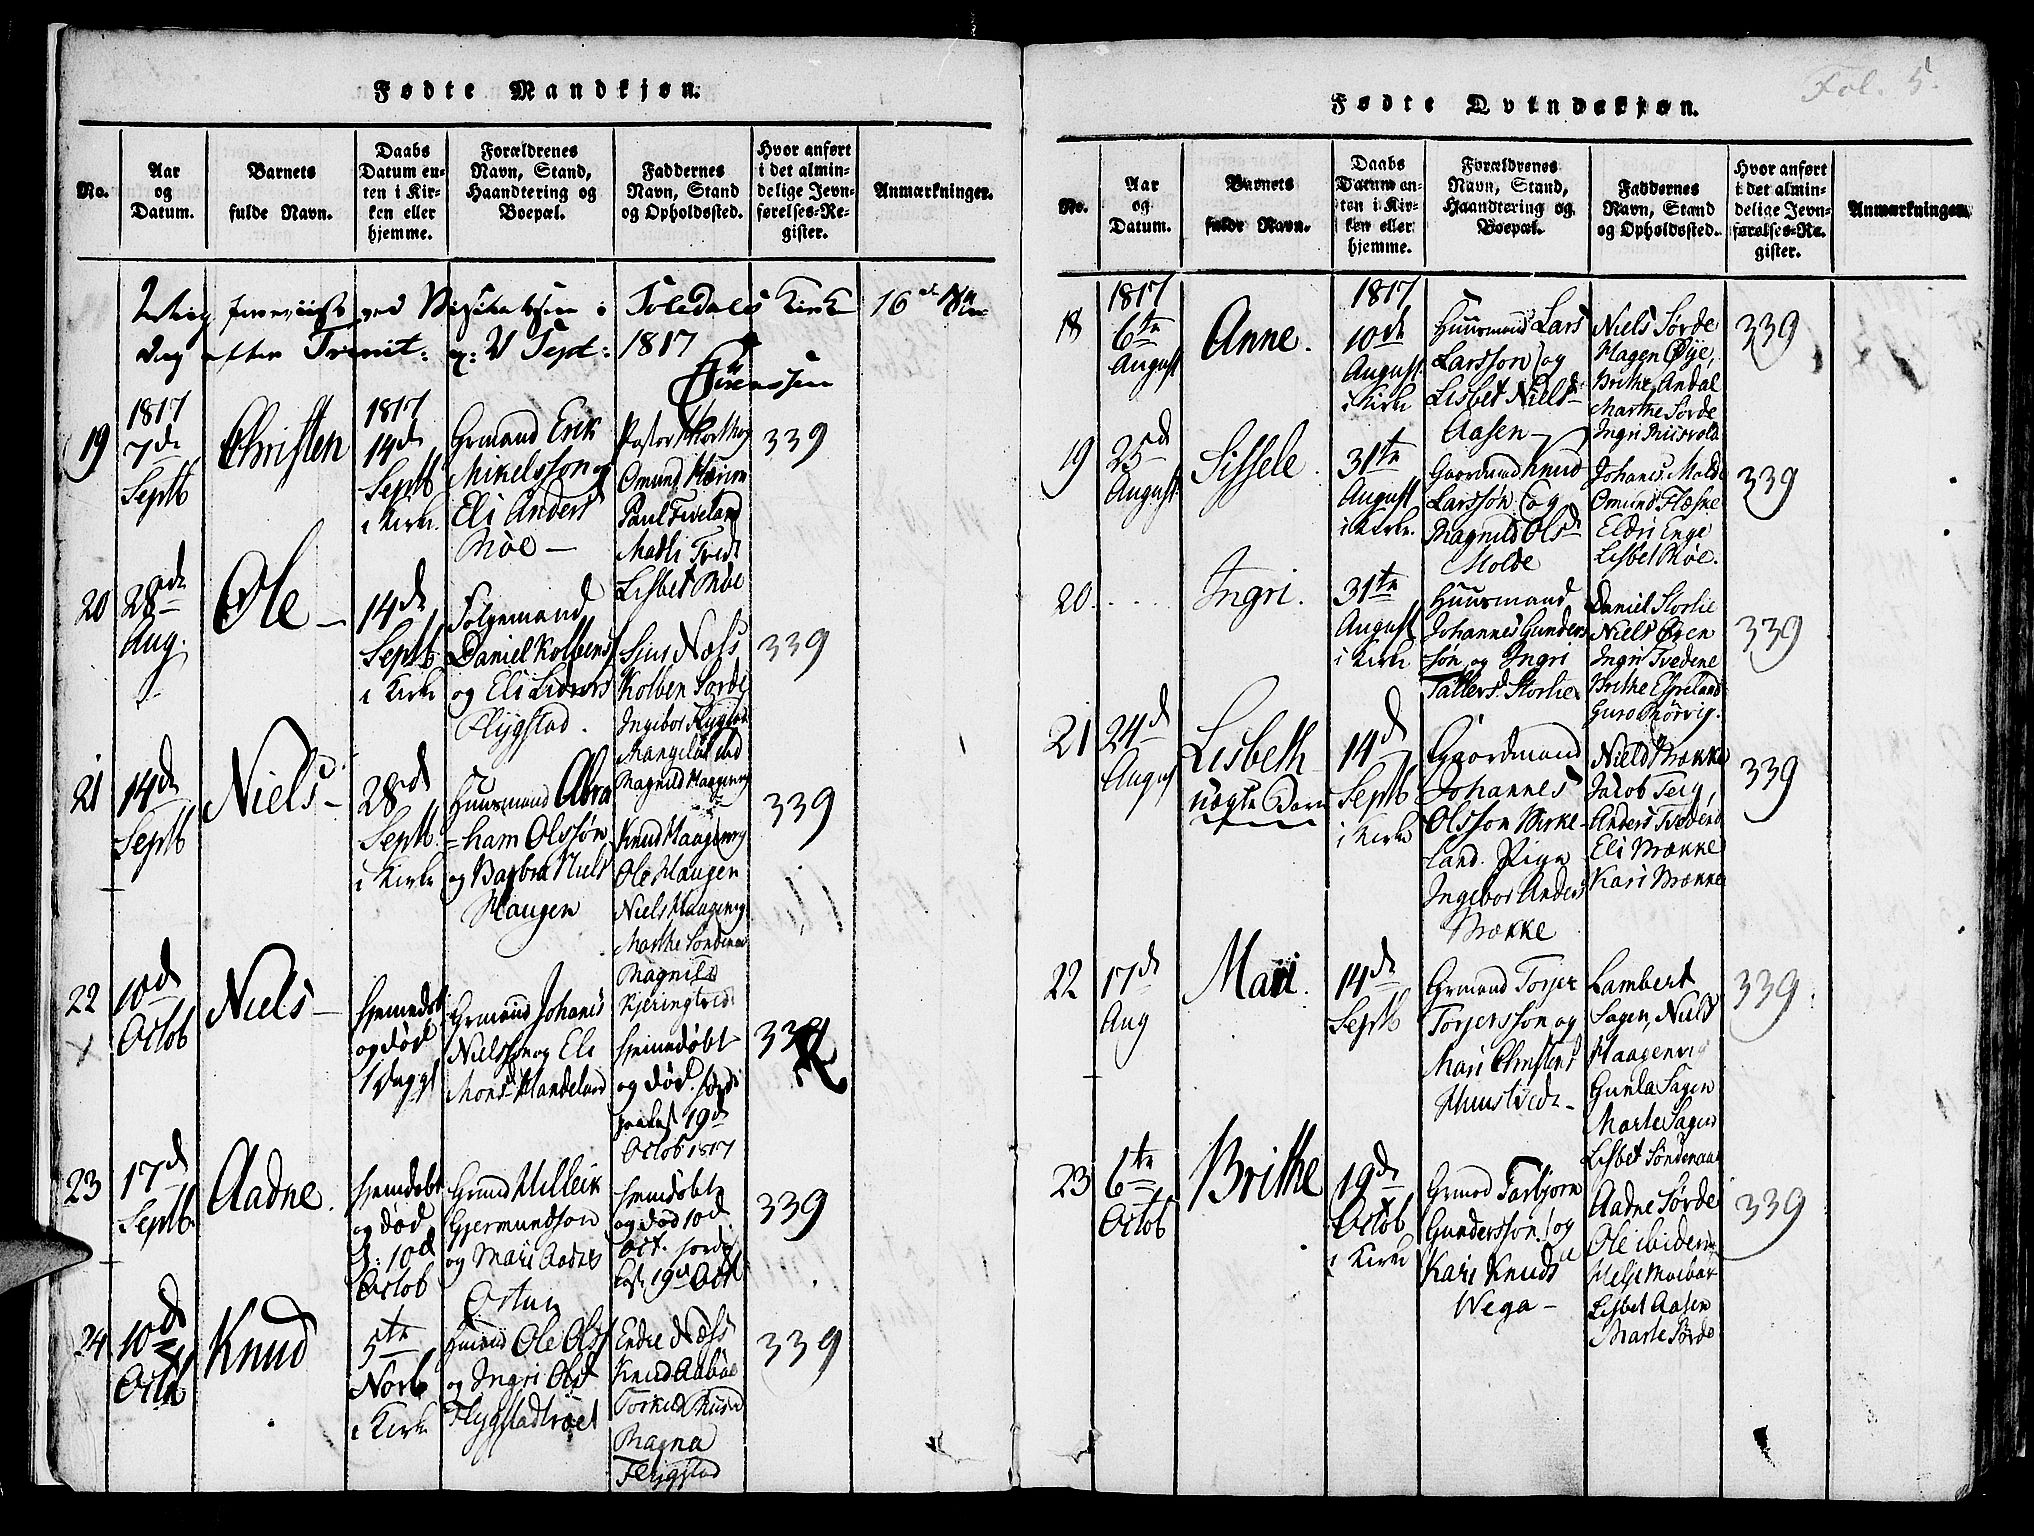 Fødte Mandkjøn.
No.
Aar
og
Datum.
Barnets
fulde Navn.
Daabs
Datum en-
ten i Kir-
ken eller
hjemme.
Forældrenes
Navn, Stand,
Haandtering og
Boepæl.
Faddernes
Navn, Stand
og Opholdssted.
Hvor anført
i det almin-
delige Jevn-
førelses-Re-
gister.
Anmærkninger.
ved Visitatsen i Kirke 16
Dag efter Trinit: Sept: 1817
Sørenssen
19
1817
7de
Septb
Christen
1817
14de
Septb
i Kirke
Grmand Erik
Mikelsson og
Eli Anders
Møe
Pastor
Omund
Paul Tveland
Lisbet Møe
339
20
28de
Aug.
Ole
14de
Septb
i Kirke
Folgemand
Daniel Kolbens
og Eli
Flygstad.
Sjur Næss
Kolben Sørde
Ingebor Flygstad
339
21
14de
Septb
Niels
28de
Septb
i Kirke
Huusmand Abra
=ham Olssøn
og Barbra Niels
Haugen
Magnild Haagenvig
Knud Haagenvig
Ole Haugen
Niels Haagenvig
Marthe Søndenaa
Magnild
339
22
10de
Octob
Niels
hjemedøbt
og død
Grmand Johanes
Nielsson og Eli
Mons. Handeland
hjemedøbt
og død.
19de
Octob 1817
339
23
17de
Septb
Aadne.
hjemdøbt
og død
d: 10de
Octob
Grmd Villeik
Gjermundson
og Mari Aadnes
hjemdøbt
og død 10d.
Oct.
19de Oct
339
24
10de
Octob
Knud
5te
Novb
i Kirke
Ole Olss
og Ingri Olsd
Endre Næss
Knud
Magna
Flygstad
339
Fol. 5.
Fødte Qvindekjøn.
No.
Aar
og
Datum.
Barnets
fulde Navn.
Daabs
Datum en-
ten i Kir-
ken eller
hjemme.
Forældrenes
Navn, Stand,
Haandtering og
Boepæl.
Faddernes
Navn, Stand
og Opholdssted.
Hvor anført
i det almin-
delige Jevn-
førelses-Re-
gister.
Anmærkninger.
18
1817
6te
August
Anne.
1817
10de
August
i Kirke
Huusmand Lars
Larsson og
Lisbet Nielsd
Aasen
Niels Sørde
Hagen Øye,
Brithe Andal
Marthe Sørde
339
19
25d
August
Sissele.
31te
August
i Kirke
Gaardmand Knud
Larssøn og
Magnild Olsd
Molde
Johanes Molde
Omund
Eldri Enge
Lisbet Møe.
339
20.
Ingri.
31te
August
i Kirke
Huusmand
Johannes Gunders
søn og Ingri
Tallersd. Storlie
Daniel Storlie
Niels Øyen
Ingri Tvedene
Brithe Espeland
339
21
24d
August
Lisbeth
uægte Barn
14d
Septb
i Kirke
Gaardmand
Johannes
Olsson Birke-
land. Pige
Ingebor Anders
Brække
Niels Brække
Jacob
Anders Tvedene
Eli Brække
Kari Brække
339
22
17de
Aug
Mari.
14de
Septb
Grmand Torjer
Torjersson og
Mari Christens
Lambert
Sagen, Niels
Haagenvig
Gunla Sagen
Marte Sagen
Lisbet Søndenaa
339
23
6te
Octob
Brithe
19de
Octob
i Kirke
Grmnd Torbjørn
Gundersson og
Kari Knudsd
Wega
Aadne Sørde
Ole ibidem,
Lisbet Aasen
Marte Sørde
339